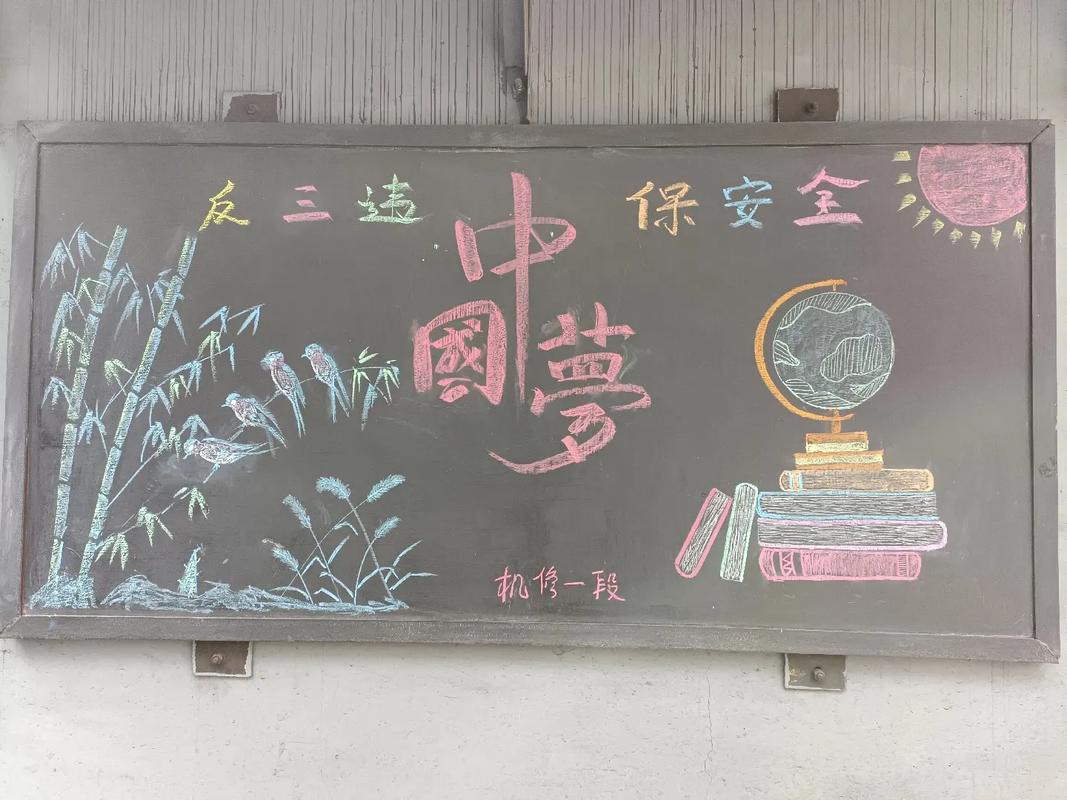 反三违 保安全
中國夢
机修一段